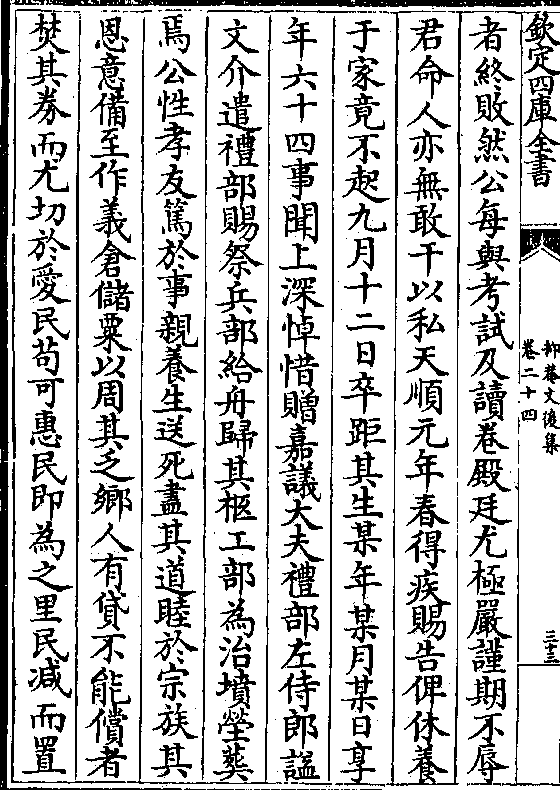 欽定四庫全書
抑菴文後集
卷二十四
三十三
者終敗然公每與考試及讀卷殿廷尤極嚴謹期不辱
君命人亦無敢干以私天順元年春得疾賜告俾休養
于家竟不起九月十二日卒距其生某年某月某日享
年六十四事聞上深悼惜贈嘉議大夫禮部左侍郎諡
文介遣禮部賜祭兵部給舟歸其柩工部為治墳塋葬
焉公性孝友篤於事親養生送死盡其道睦於宗族其
恩意備至作義倉儲粟以周其乏鄉人有貸不能償者
焚其券而尤切於愛民苟可惠民即為之里民減而置